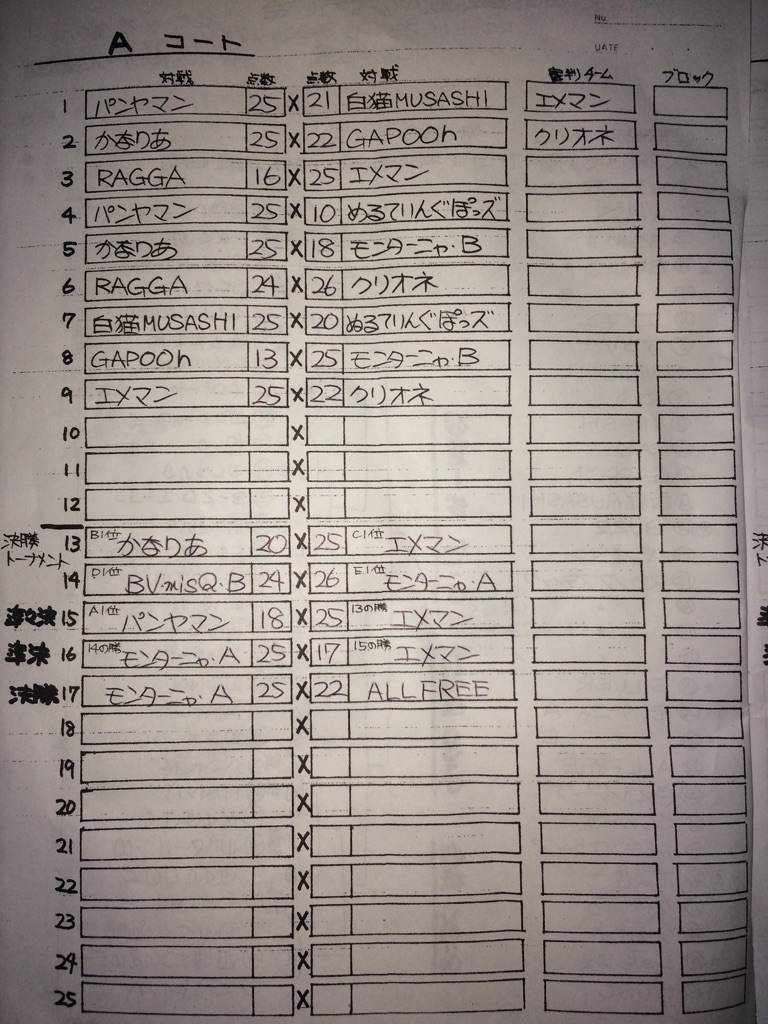 No.
DATE
A コート
対戦 点数 点数 対戦 審判チーム ブロック
1 パンヤマン 25 X 21 白猫MUSASHI エメマン
2 かなりあ 25 X 22 GAPOOh クリオネ
3 RAGGA 16 X 25 エメマン
4 パンヤマン 25 X 10 ぬるてりんぐぽっズ
5 かなりあ 25 X 18 モンターニャ・B
6 RAGGA 24 X 26 クリオネ
7 白猫MUSASHI 25 X 20 ぬるてりんぐぽっズ
8 GAPOOh 13 X 25 モンターニャ・B
9 エメマン 25 X 22 クリオネ
10 X
11 X
12 X
決勝トーナメント 13 B1位 かなりあ 20 X 25 C1位 エメマン
14 D1位 BV・misQ・B 24 X 26 E1位 モンターニャ・A
準々決 15 A1位 パンヤマン 18 X 25 13の勝 エメマン
準決 16 14の勝 モンターニャ・A 25 X 17 15の勝 エメマン
決勝 17 モンターニャ・A 25 X 22 ALL FREE
18 X
19 X
20 X
21 X
22 X
23 X
24 X
25 X